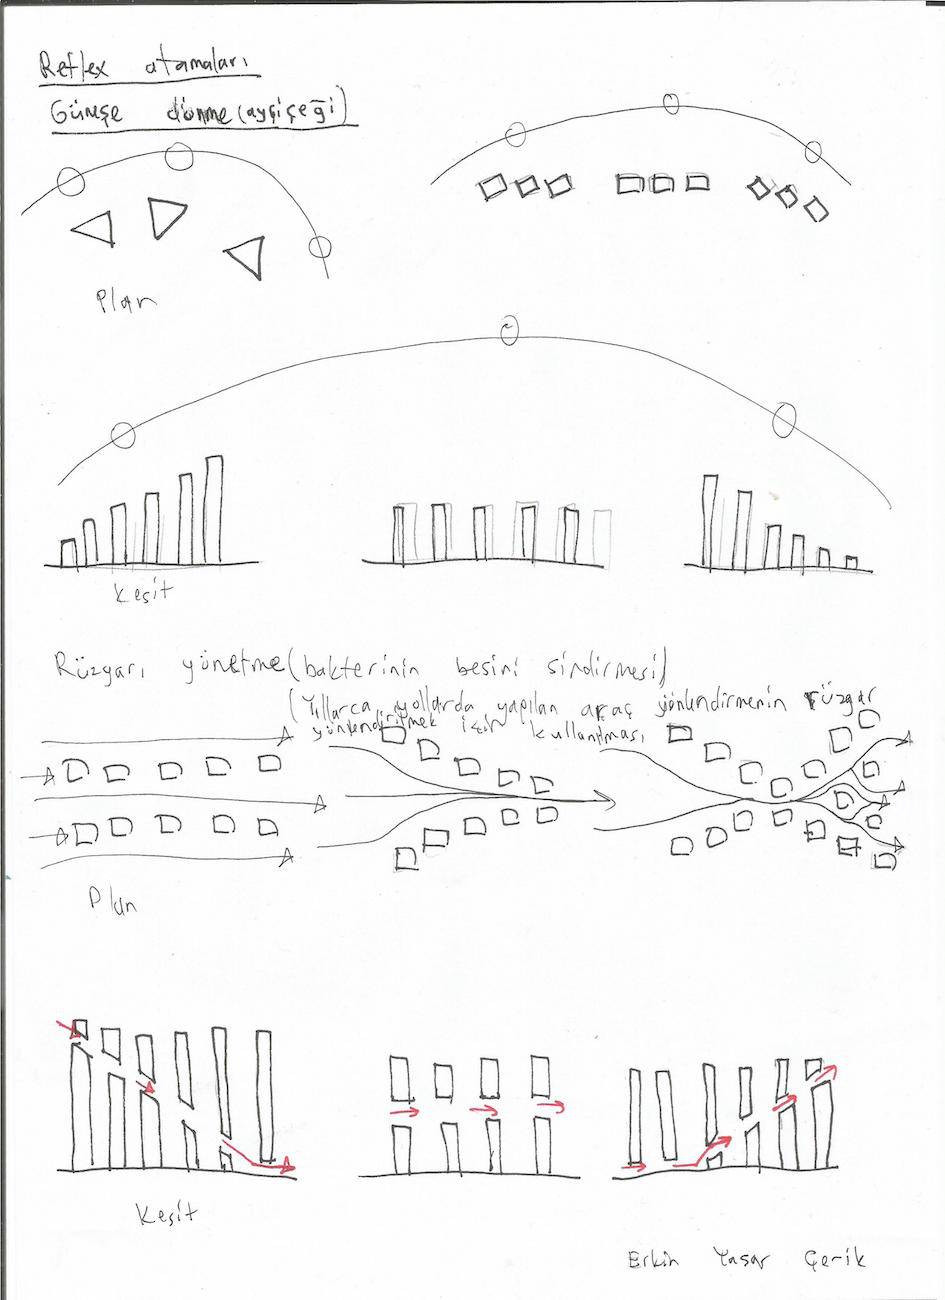 Reflex atamaları
Güneşe dönme (ayçiçeği)
Plan
Kesit
Rüzgarı yönetme (bakterinin besini sindirmesi)
(Yıllarca yollarda yapılan araç yönlendirmenin rüzgar
yönlendirilmek için kullanılması
Plan
Kesit
Erkin Yaşar Çerik